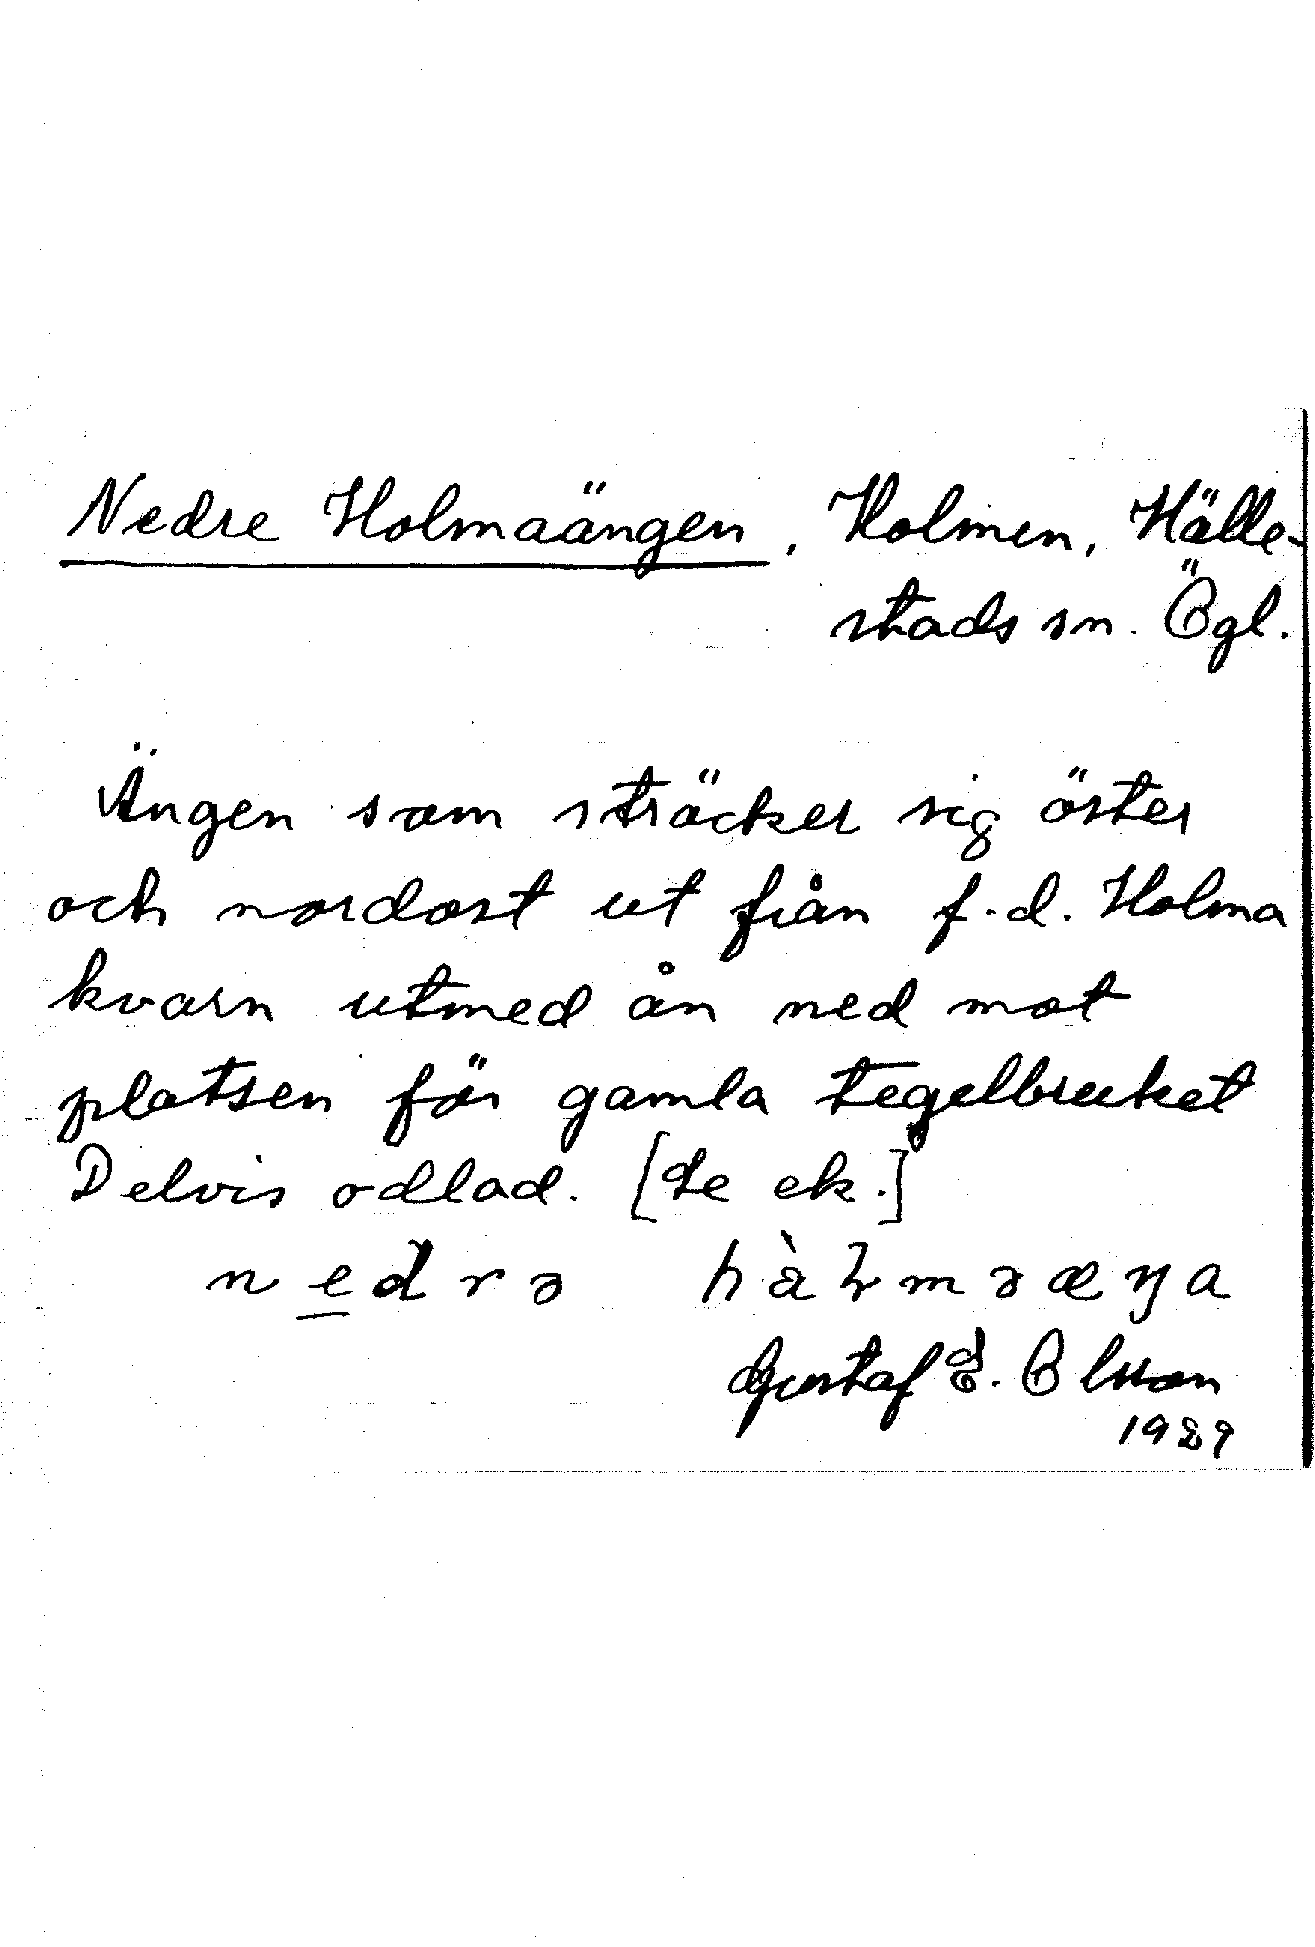 Nedre Holmaängen, Holmen, Hälle-
stads sn. Ögl.
Ängen som sträcker sig öster
och nordost ut från f.d. Holma
kvarn utmed ån ned mot
platsen för gamla tegelbruket
Delvis odlad. [Se ek.]
nedrə hàɫməæŋa
Gustaf E. Olsson
1929